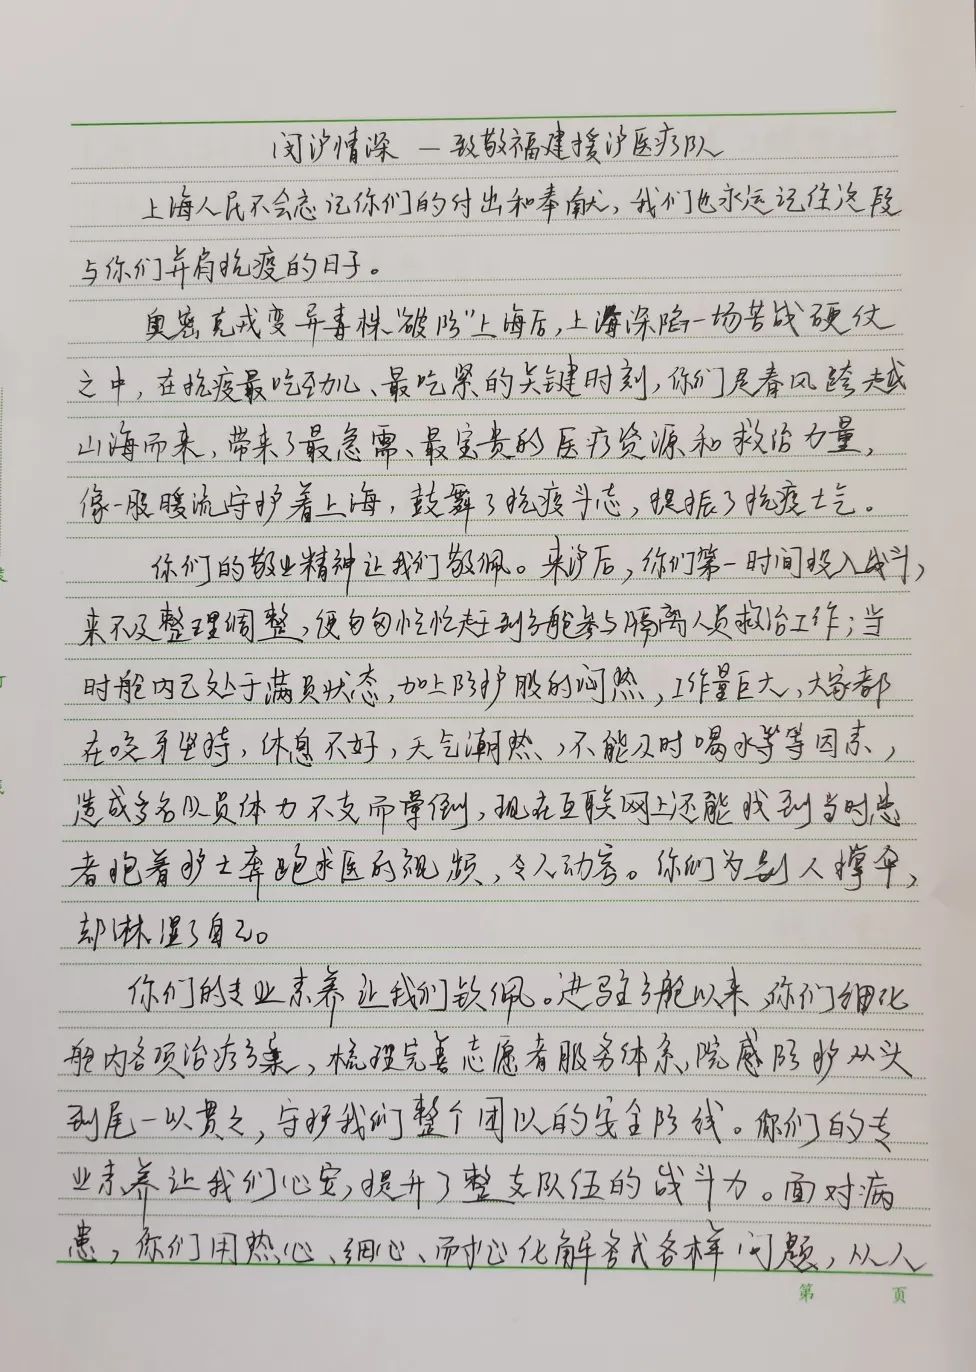 闵沪情深 — 致敬福建援沪医疗队
上海人民不会忘记你们的付出和奉献，我们也永远记住这段
与你们并肩抗疫的日子。
奥密克戎变异毒株“破防”上海后，上海深陷一场苦战硬仗
之中，在抗疫最吃劲儿、最吃紧的关键时刻，你们是春风跨越
山海而来，带来了最急需、最宝贵的医疗资源和救治力量，
像一股暖流守护着上海，鼓舞了抗疫斗志，提振了抗疫士气。
你们的敬业精神让我们敬佩。来沪后，你们第一时间投入战斗，
来不及整理调整，便匆匆忙忙赶到方舱参与隔离人员救治工作；当
时舱内已处于满员状态，加上防护服的闷热，工作量巨大，大家都
在咬牙坚持，休息不好，天气潮热、，不能及时喝水等等因素，
造成多名队员体力不支而晕倒，现在互联网上还能找到当时患
者抱着护士奔跑求医的视频，令人动容。你们为别人撑伞，
却淋湿了自己。
你们的专业素养让我们钦佩。进驻方舱以来 你们细化
舱内各项治疗方案，梳理完善志愿者服务体系，院感防护从头
到尾一以贯之，守护我们整个团队的安全防线。你们的专
业素养让我们心安，提升了整支队伍的战斗力。面对病
患，你们用热心、细心、耐心化解各式各样问题，从人
第 页